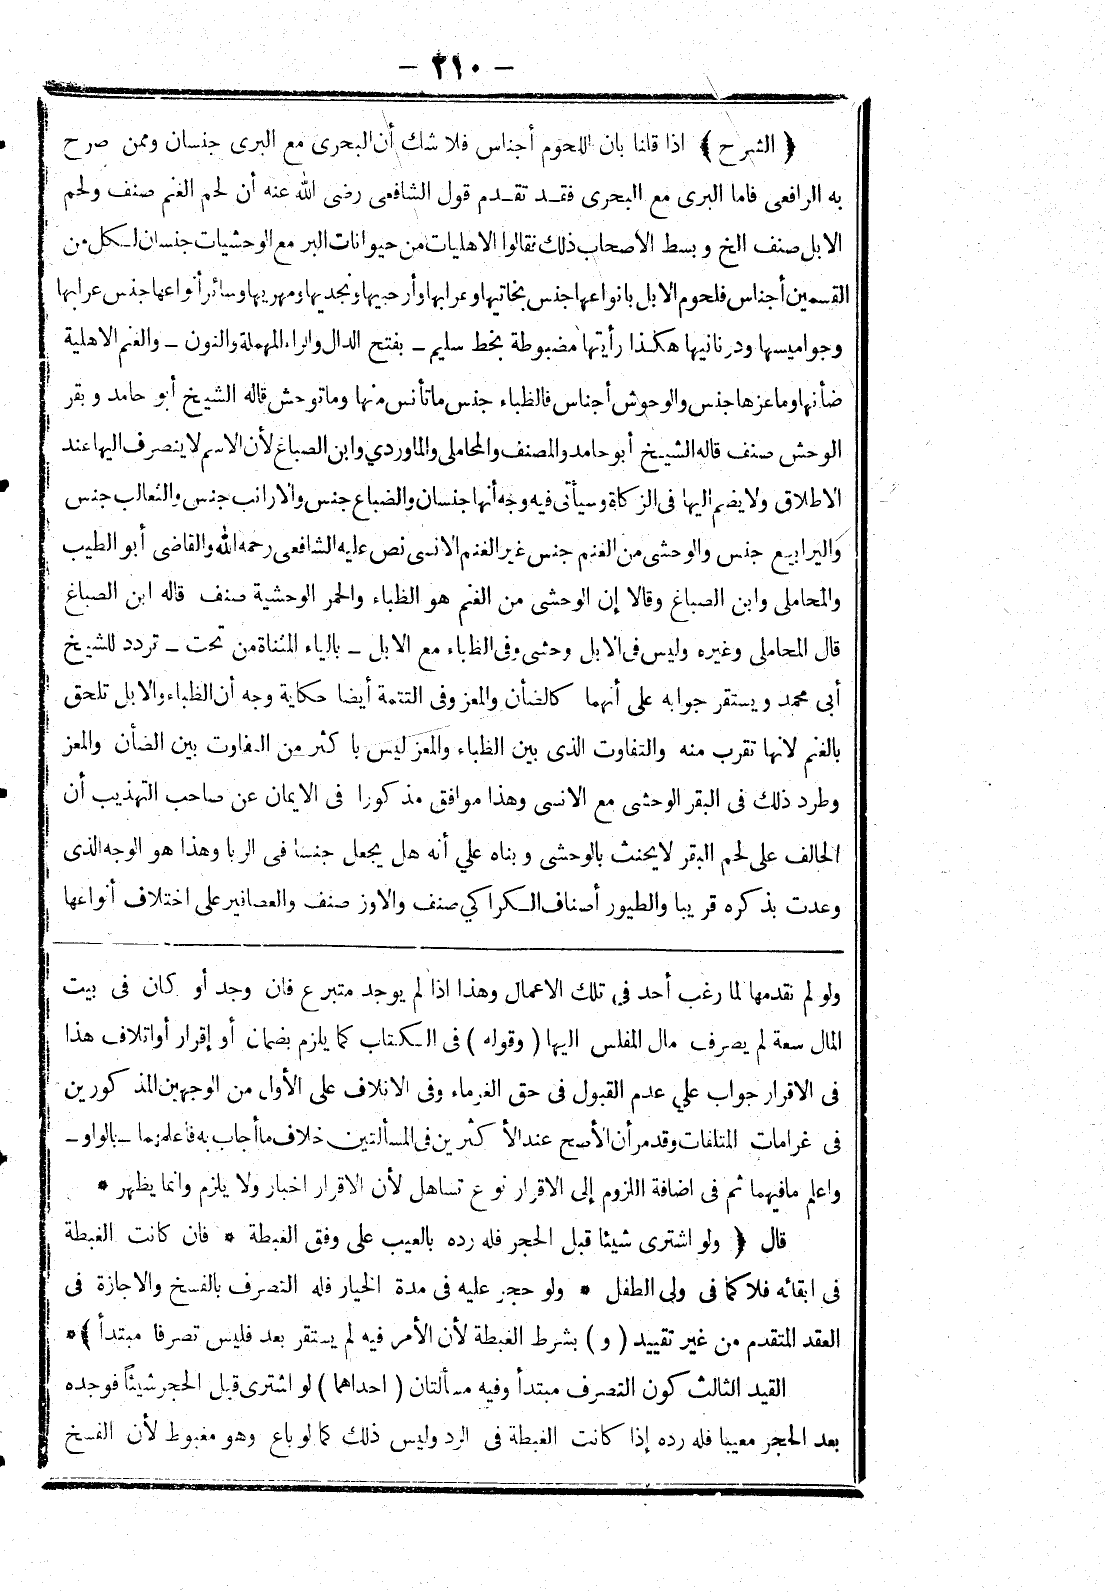 — ٢١٠ —
﴿ الشرح ﴾ اذا قلنا بان اللحوم أجناس فلا شك أن البحرى مع البرى جنسان وممن صرح
به الرافعى فاما البرى مع البحرى فقد تقدم قول الشافعى رضى الله عنه أن لحم الغنم صنف ولحم
الابل صنف الخ وبسط الاصحاب ذلك فقالوا الاهليات من حيوانات البر مع الوحشيات جنسان لكل من
القسمين أجناس فلحوم الابل بانواعها جنس بخاتيها وعرابها وأرحبيها ونجديها ومهريها وسائر أنواعها جنس عرابها
وجواميسها ودرنانيها هكذا رأيتها مضبوطة بخط سليم ـ بفتح الدال والراء المهملة والنون ـ والغنم الاهلية
ضأنها وماعزها جنس والوحوش أجناس فالظباء جنس ما تأنس منها وما توحش قاله الشيخ أبو حامد وبقر
الوحش صنف قاله الشيخ أبو حامد والمصنف والمحاملى والماوردي وابن الصباغ لأن الاسم لا ينصرف اليها عند
الاطلاق ولا يضم اليها فى الزكاة وسيأتى فيه وجه أنها جنسان والضباع جنس والارانب جنس والثعالب جنس
واليرابيع جنس والوحشى من الغنم جنس غير الغنم الانسى نص عليه الشافعى رحمه الله والقاضى أبو الطيب
والمحاملى وابن الصباغ وقالا إن الوحشى من الغنم هو الظباء والحمر الوحشية صنف قاله ابن الصباغ
قال المحاملى وغيره وليس فى الابل وحشى وفى الظباء مع الابل ـ بالياء المثناة من تحت ـ تردد للشيخ
أبى محمد ويستقر جوابه على أنهما كالضأن والمعز وفى التتمة أيضا حكاية وجه أن الظباء والابل تلحق
بالغنم لانها تقرب منه والتفاوت الذى بين الظباء والمعز ليس با كثر من التفاوت بين الضأن والمعز
وطرد ذلك فى البقر الوحشى مع الانسى وهذا موافق مذكورا فى الايمان عن صاحب التهذيب أن
الحالف على لحم البقر لا يحنث بالوحشى وبناه علي أنه هل يجعل جنسا فى الربا وهذا هو الوجه الذى
وعدت بذكره قريبا والطيور أصناف الكراكي صنف والاوز صنف والعصافير على اختلاف أنواعها
ولو لم نقدمها لما رغب أحد في تلك الاعمال وهذا اذا لم يوجد متبرع فان وجد أو كان فى بيت
المال سعة لم يصرف مال المفلس اليها ( وقوله ) فى الكتاب كما يلزم بضمان أو إقرار أو اتلاف هذا
فى الاقرار جواب علي عدم القبول فى حق الغرماء وفى الاتلاف على الأول من الوجهين المذكورين
فى غرامات المتلفات وقد مر أن الأصح عند الأكثرين فى المسألتين خلاف ما أجاب به فأعلمهما ـ بالواو ـ
واعلم مافيهما ثم فى اضافة اللزوم إلى الاقرار نوع تساهل لأن الاقرار اخبار ولا يلزم وانما يظهر *
قال ﴿ ولو اشترى شيئا قبل الحجر فله رده بالعيب على وفق الغبطة * فان كانت الغبطة
فى ابقائه فلا كما فى ولى الطفل * ولو حجر عليه فى مدة الخيار فله التصرف بالفسخ والاجازة فى
العقد المتقدم من غير تقييد ( و ) بشرط الغبطة لأن الأمر فيه لم يستقر بعد فليس تصرفا مبتدأ ﴾ *
القيد الثالث كون التصرف مبتدأ وفيه مسألتان ( احداهما ) لو اشترى قبل الحجر شيئاً فوجده
بعد الحجر معيبا فله رده إذا كانت الغبطة فى الرد وليس ذلك كما لو باع وهو مغبوط لأن الفسخ